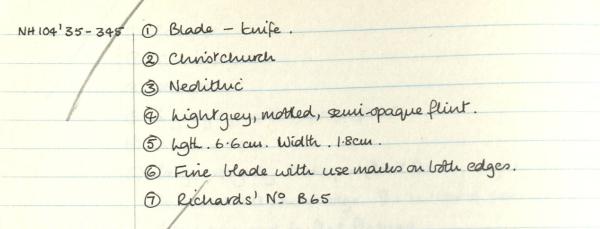 NH104'35-345 ① Blade - knife.
② Christchurch
③ Neolithic
④ Light grey, mottled, semi-opaque flint.
⑤ Lgth. 6.6cm. Width. 1.8cm.
⑥ Fine blade with use marks on both edges.
⑦ Richards' Nº B65